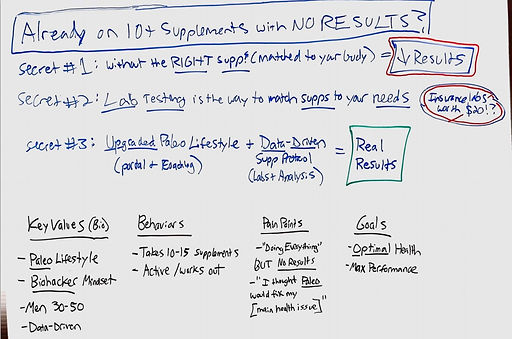 Already on 10+ Supplements with NO RESULTS?
secret #1: without the RIGHT supps (matched to your body) = ↓ Results
secret #2: Lab Testing is the way to match supps to your needs (Insurance labs worth $20!?
secret #3: Upgraded Paleo Lifestyle + Data-Driven Supp Protocol = Real Results
(portal + Coaching) (Labs + Analysis)
Key Values (Bio)
- Paleo Lifestyle
- Biohacker Mindset
- Men 30-50
- Data-Driven
Behaviors
- Takes 10-15 supplements
- Active/works out
Pain Points
- "Doing Everything"
BUT No Results
- "I thought Paleo
would fix my
[main health issue]"
Goals
- Optimal Health
- Max Performance